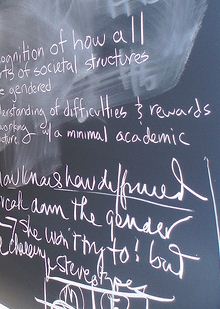 ognition of how all
rts of societal structures
e gendered
erstanding of difficulties & rewards
working of a minimal academic
cture
how
call the gender
she won't try to! but
challeng stereotypes
M F